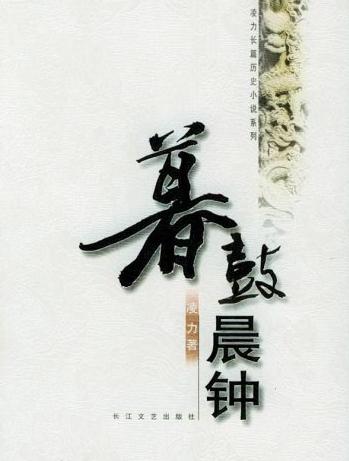 凌力长篇历史小说系列
暮鼓晨钟
凌力著
长江文艺出版社